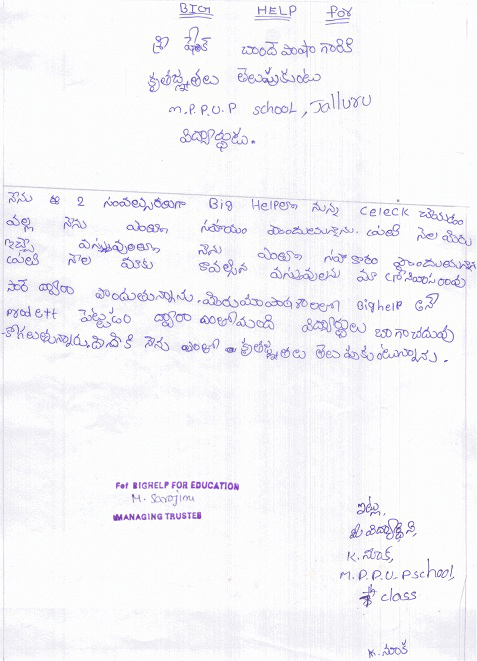 BIG HELP for
శ్రీ షేక్ చాందె పాషా గారికి
కృతజ్ఞతలు తెలుపుకుంటు
M.P.P.U.P school, Jalluru
విద్యార్థుడు.
నేను ఈ 2 సంవత్సరాలుగా Big Helpలా నున్న celeck చేయడం
వల్ల నేను ఎంతగా సహాయం పొందుతున్నాను. ప్రతి నెల మీరు
ఇచ్చే వస్తువులతూ నేను ఎంతగా సహకారం పొందుతున్నాను
ప్రతి నెల మాకు కావల్సిన వస్తువులను మా
సార్ ద్వారా పొందుతున్నాను. మీరు మా పాఠశాలలో Bighelp అనే
prodett పెట్టడం ద్వారా ఎంతోమంది విద్యార్థులు బాగా చదువు
కోగలుతున్నారు. దీనికి నేను ఎంతో కృతజ్ఞతలు తెలుపుకుంటున్నాను.
For BIGHELP FOR EDUCATION
M. Sarojini
MANAGING TRUSTEE
ఇట్లు,
మీ విద్యార్థిని,
K. నూక,
M.P.P.U.P school,
class
K. నూక